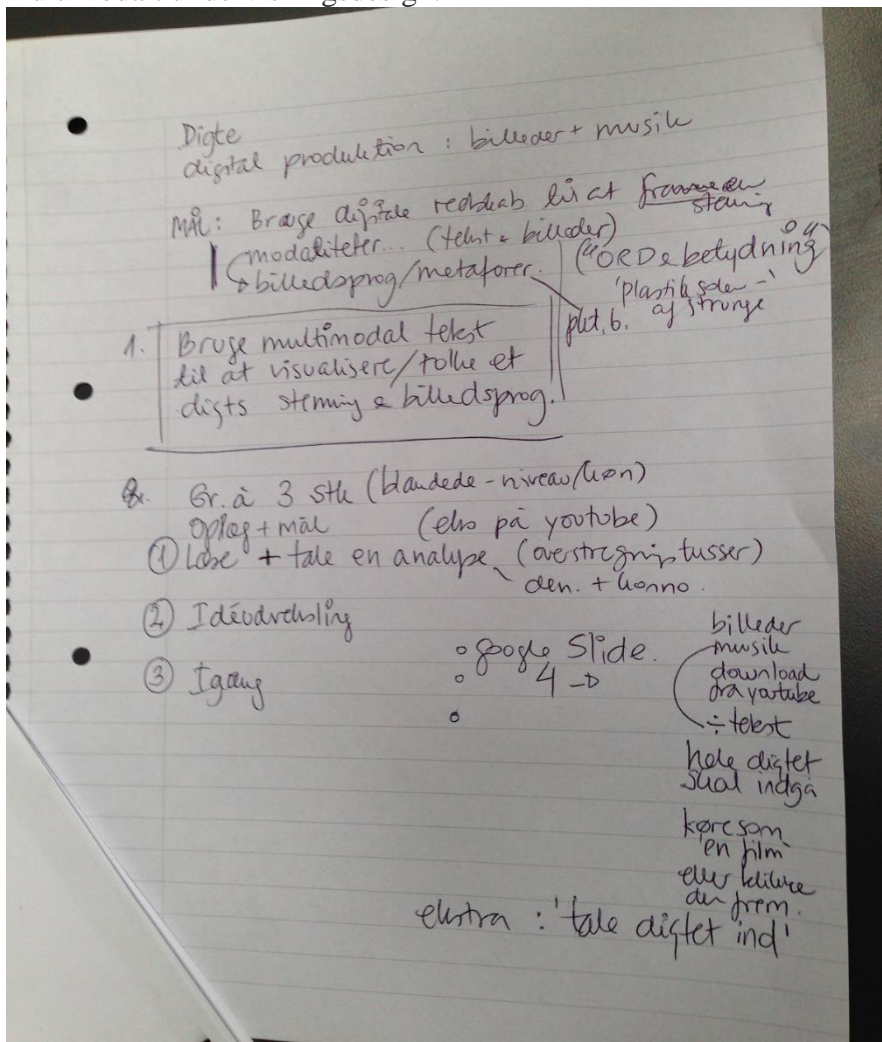 Digte
digital produktion : billeder + musik
MÅL: Bruge digitale redskab til at fremme en
stemning
modaliteter... (tekst & billeder)
billedsprog/metaforer.
("ORD & betydning"
'plastik solen -'
af strunge
1. Bruge multimodal tekst
til at visualisere/tolke et
digts stemning & billedsprog.
Gr. à 3 stk (blandede - niveau/køn)
Oplæg + mål (eks på youtube)
① Læse + tale en analyse (overstregningstusser)
den. + konno.
② Idéudveksling
③ Igang
google Slide.
4
billeder
musik
download
fra youtube
÷ tekst
hele digtet
skal indgå
køre som
'en film'
eller klikke
den frem.
ekstra : 'tale digtet ind'